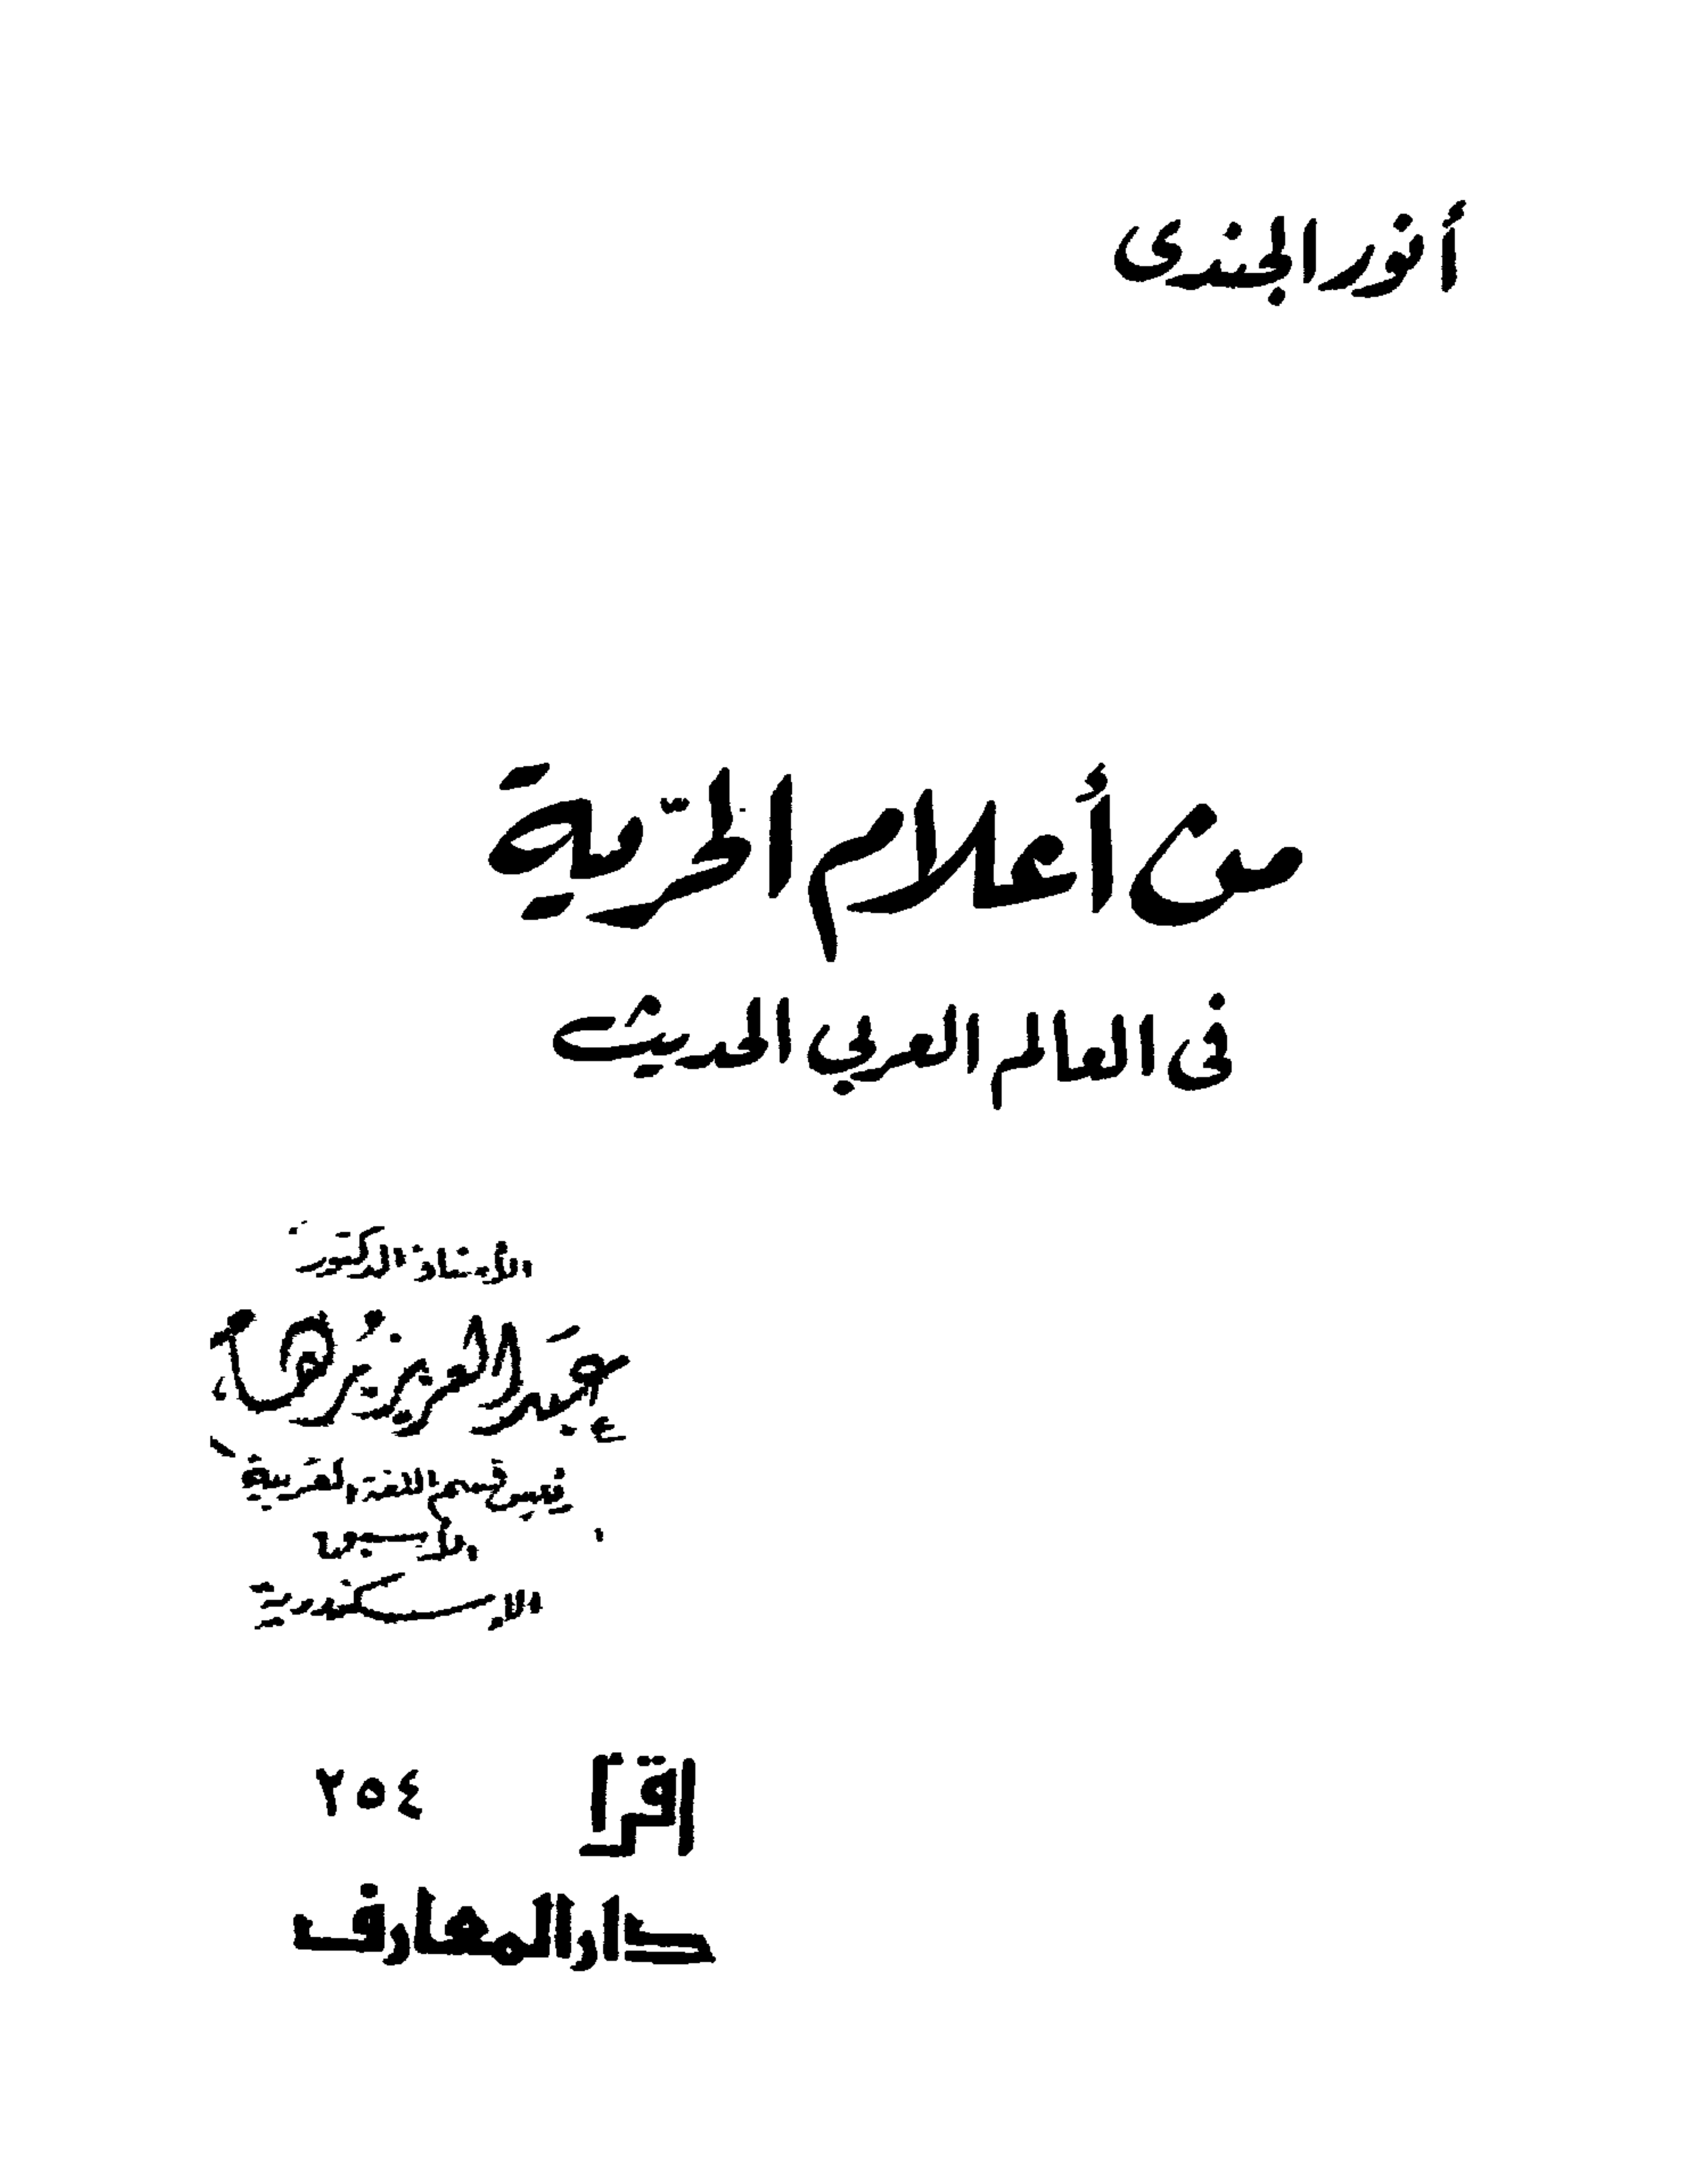 أنور الجندى
من أعلام الحرّية
فى العالم العربي الحديث
الأستاذ الدكتور
عبد العزيز برهام
رئيس قسم اللغة العربية
الاسكندرية
اقرأ ٢٥٤
دار المعارف